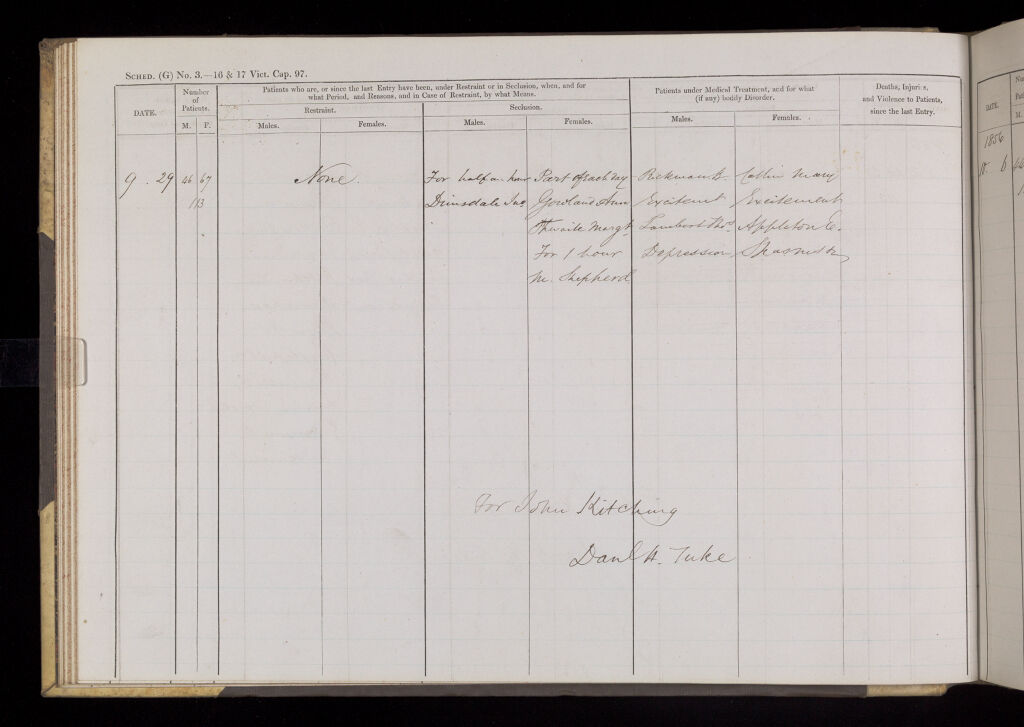 SCHED. (G) No. 3.—16 & 17 Vict. Cap. 97.
DATE.
Number of Patients.
M. F.
Patients who are, or since the last Entry have been, under Restraint or in Seclusion, when, and for
what Period, and Reasons, and in Case of Restraint, by what Means.
Restraint.
Seclusion.
Males. Females. Males. Females.
Patients under Medical Treatment, and for what
(if any) bodily Disorder.
Males. Females.
Deaths, Injuries,
and Violence to Patients,
since the last Entry.
9 . 29 46 67 None. For half an hour Part of each day Rickman B. Collin Mary
113 Dimsdale Jas. Gowland Ann Excitemt Excitement
Thwaite Margt Lambert Thos. Appleton E.
For 1 hour Depression
M. Shepherd
For John Kitching
Danl H. Tuke
DATE.
M.
1856
10. 6 44